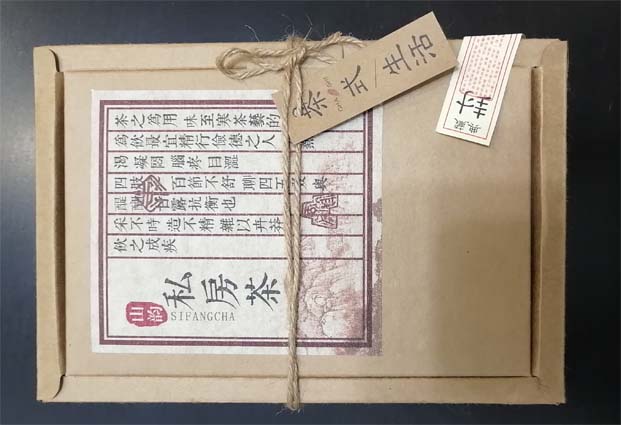 茶之為用 味至寒茶藝的
為飲最宜精行儉德之人
渴凝悶腦疼目澀
四肢 百節不舒聊四五 與
醍 甘露抗衡也
采不時造不精雜以卉莽
飲之成疾
山韵
私房茶
SIFANGCHA
茶式生活
封